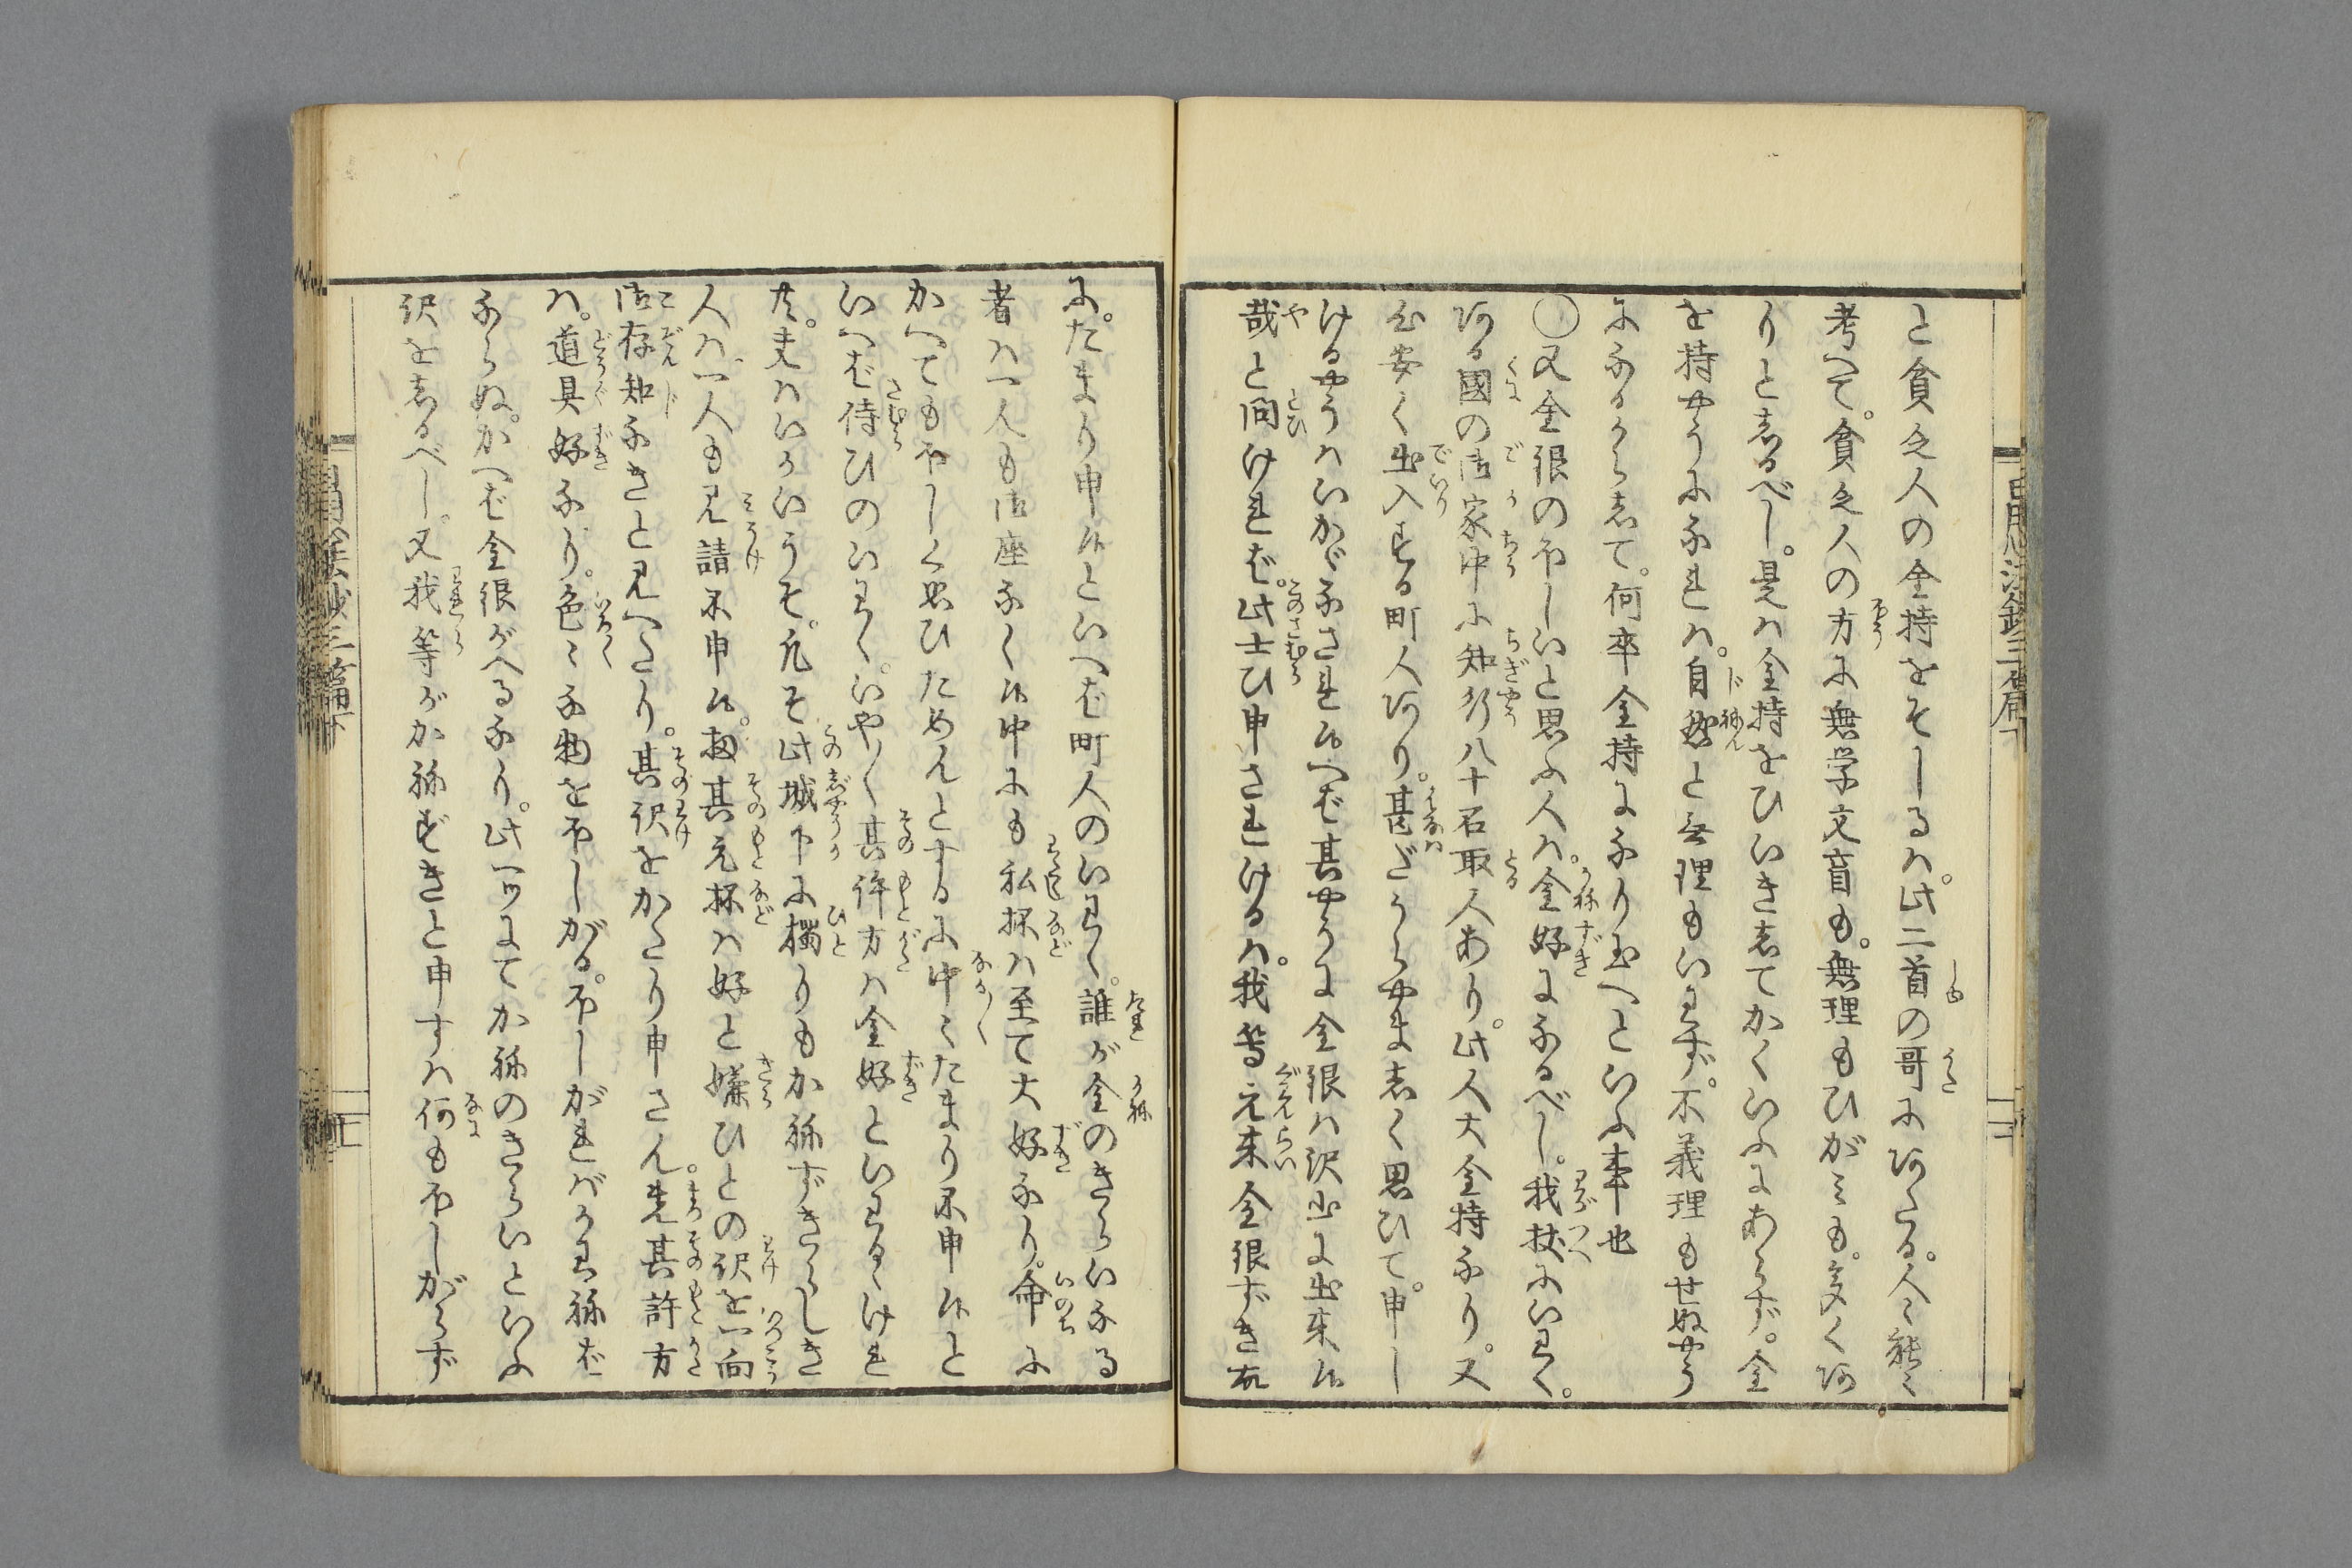 と貧乏人の金持をそしるハ。此二首の哥にあたる。人〻能〻
考へて。貧乏人の方に無学文盲も。無理もひがミも。多くあ
りとしるべし。是ハ金持をひいきしてかくいふにあらず。金
を持やうになれハ。自然と無理もいわず。不義理もせぬやう
になるからして。何卒金持になり玉へといふ事也
〇又金銀のほしいと思ふ人ハ。金好になるべし。我杖にいわく。
ある國の御家中に知行八十石取人あり。此人大金持なり。又
心安く出入する町人あり。甚だうらやましく思ひて。申し
けるやうハいかゞなされ候へば其やうに金銀ハ沢山に出来候
哉と問けれバ。此士ひ申されけるハ。我等元来金銀ずき故
に。たまり申候といへば町人のいわく。誰が金のきらいなる
者ハ一人も御座なく候中にも私抔ハ至て大好なり。命に
かへてもほしく思ひためんとするに中〻たまり不申候と
いへば侍ひのいわく。いや〳〵其許方ハ金好といわるゝけれ
共。夫ハいかいうそ。凡そ此城下に獨りもか祢ずきらしき
人ハ一人も見請不申候。扨其元抔ハ好と嫌ひとの訳を一向
御存知なきと見へたり。其訳をかたり申さん。先其許方
ハ。道具好なり。色〻な物をほしがる。ほしがれバか祢ば
ならぬ。かへば金銀がへるなり。此一ツにてか祢のきらいといふ
訳をしるべし。又我等がか祢ずきと申すハ何もほしがらず